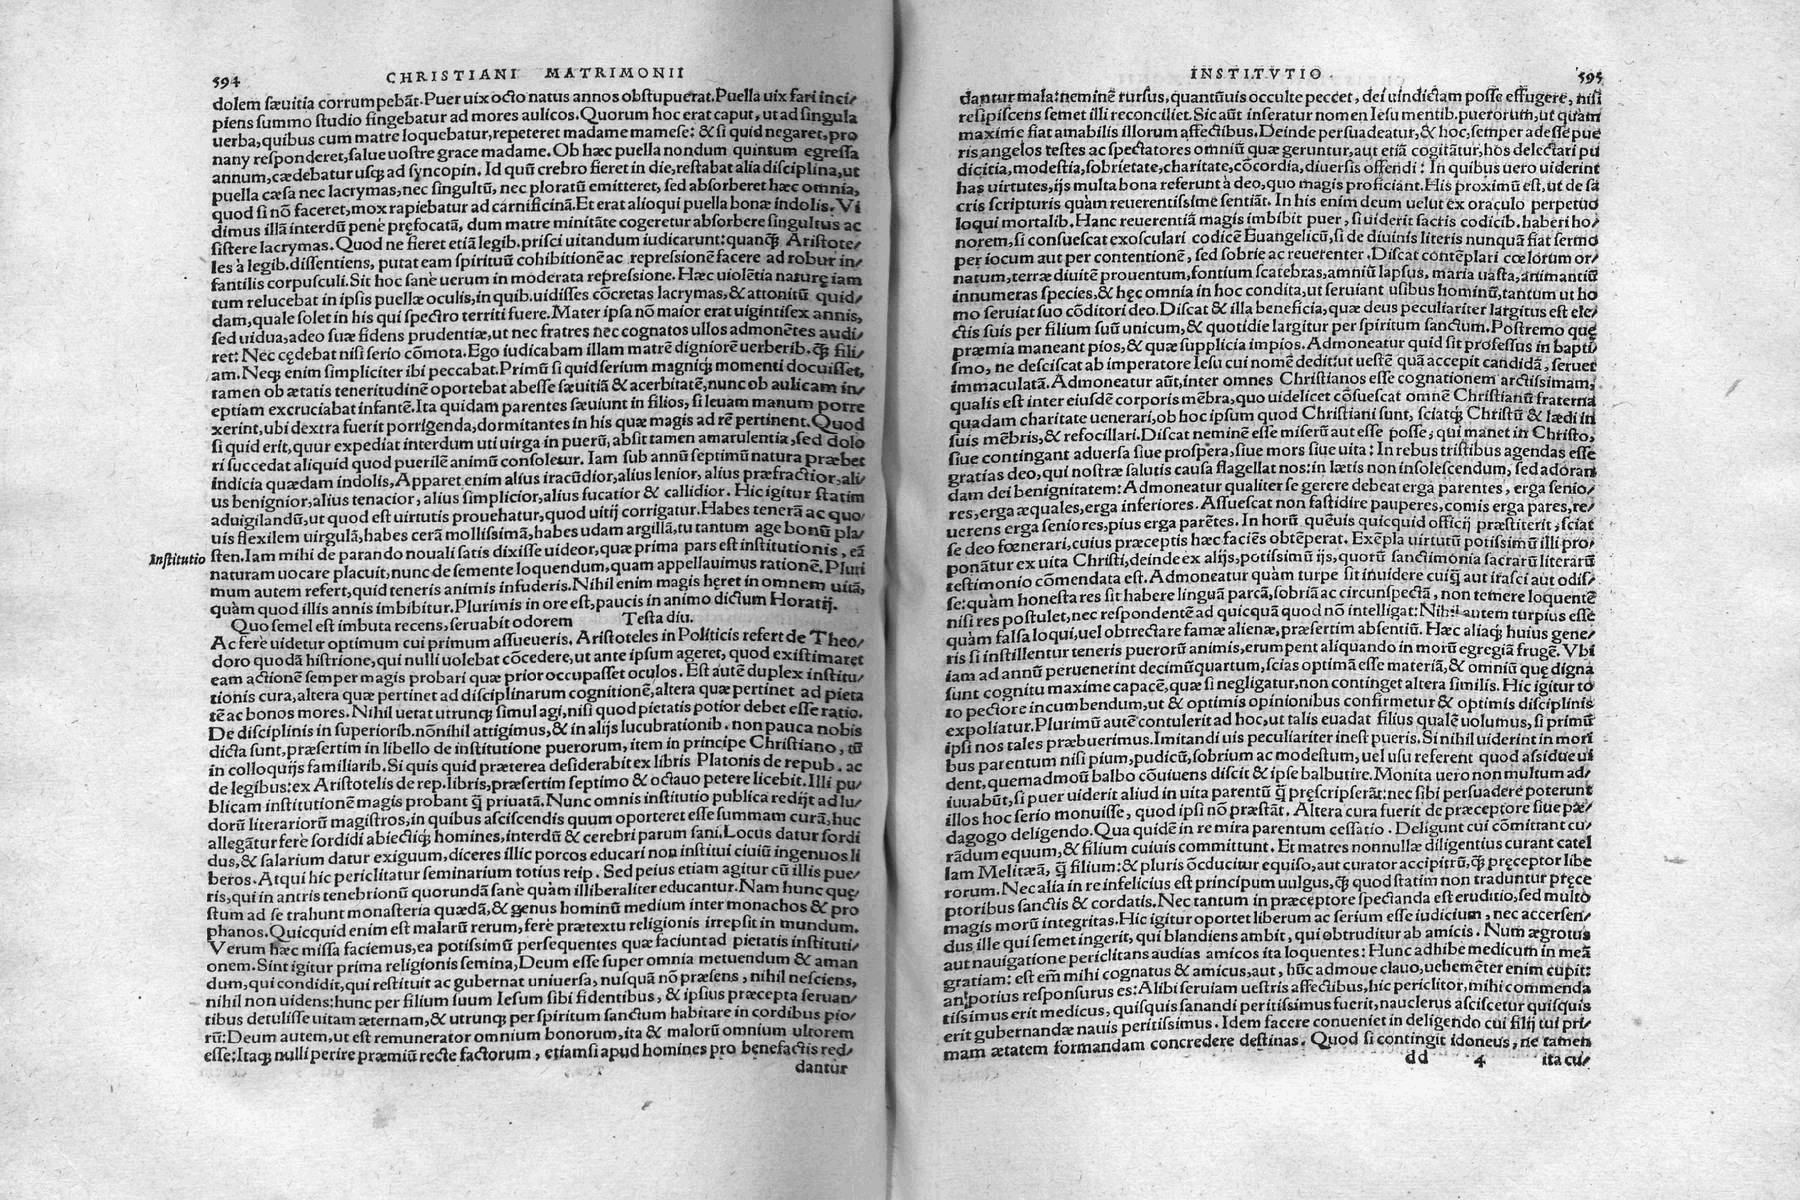 594
CHRISTIANI MATRIMONII
dolem sæuitia corrumpebãt. Puer uix octo natus annos obstupuerat. Puella uix fari inci⸗
piens summo studio fingebatur ad mores aulicos. Quorum hoc erat caput, ut ad singula
uerba, quibus cum matre loquebatur, repeteret madame mamese: & si quid negaret, pro
nany responderet, salue uostre grace madame. Ob hæc puella nondum quintum egressa
annum, cædebatur usq; ad syncopin. Id quũ crebro fieret in die, restabat alia disciplina, ut
puella cæsa nec lacrymas, nec singultũ, nec ploratũ emitteret, sed absorberet hæc omnia,
quod si nõ faceret, mox rapiebatur ad carnificinã. Et erat alioqui puella bonæ indolis. Vi
dimus illã interdũ penè pręfocatã, dum matre minitãte cogeretur absorbere singultus ac
sistere lacrymas. Quod ne fieret etiã legib. prisci uitandum iudicarunt: quanq̃ Aristote⸗
les à legib. dissentiens, putat eam spirituũ cohibitionē ac repressionē facere ad robur in⸗
fantilis corpusculi. Sit hoc sanè uerum in moderata repressione. Hæc uiolētia naturę iam
tum relucebat in ipsis puellæ oculis, in quib. uidisses cõcretas lacrymas, & attonitũ quid⸗
dam, quale solet in his qui spectro territi fuere. Mater ipsa nõ maior erat uigintisex annis,
sed uidua, adeo suæ fidens prudentiæ, ut nec fratres nec cognatos ullos admonētes audi⸗
ret: Nec cędebat nisi serio cõmota. Ego iudicabam illam matrē digniorē uerberib. q̃ fili⸗
am. Neq; enim simpliciter ibi peccabat. Primũ si quid serium magniq; momenti docuisset,
tamen ob ætatis teneritudinē oportebat abesse sæuitiã & acerbitatē, nunc ob aulicam in⸗
eptiam excruciabat infantē. Ita quidam parentes sæuiunt in filios, si leuam manum porre
xerint, ubi dextra fuerit porrigenda, dormitantes in his quæ magis ad rē pertinent. Quod
si quid erit, quur expediat interdum uti uirga in puerũ, absit tamen amarulentia, sed dolo
ri succedat aliquid quod puerilē animũ consoletur. Iam sub annũ septimũ natura præbet
indicia quædam indolis, Apparet enim alius iracũdior, alius lenior, alius præfractior, ali⸗
us benignior, alius tenacior, alius simplicior, alius fucatior & callidior. Hic igitur statim
aduigilandũ, ut quod est uirtutis prouehatur, quod uitij corrigatur. Habes tenerã ac quo
uis flexilem uirgulã, habes cerã mollissimã, habes udam argillã, tu tantum age bonũ pla⸗
Institutio
sten. Iam mihi de parando nouali satis dixisse uideor, quæ prima pars est institutionis, eã
naturam uocare placuit, nunc de semente loquendum, quam appellauimus rationē. Pluri
mum autem refert, quid teneris animis infuderis. Nihil enim magis hęret in omnem uitã,
quàm quod illis annis imbibitur. Plurimis in ore est, paucis in animo dictum Horatij.
Quo semel est imbuta recens, seruabit odorem Testa diu.
Ac ferè uidetur optimum cui primum assueueris. Aristoteles in Politicis refert de Theo⸗
doro quodã histrione, qui nulli uolebat cõcedere, ut ante ipsum ageret, quod existimaret
eam actionē semper magis probari quæ prior occupasset oculos. Est autē duplex institu⸗
tionis cura, altera quæ pertinet ad disciplinarum cognitionē, altera quæ pertinet ad pieta
tē ac bonos mores. Nihil uetat utrunq; simul agi, nisi quod pietatis potior debet esse ratio.
De disciplinis in superiorib. nõnihil attigimus, & in alijs lucubrationib. non pauca nobis
dicta sunt, præsertim in libello de institutione puerorum, item in principe Christiano, tũ
in colloquijs familiarib. Si quis quid præterea desiderabit ex libris Platonis de repub. ac
de legibus: ex Aristotelis de rep. libris, præsertim septimo & octauo petere licebit. Illi pu⸗
blicam institutionē magis probant q̃ priuatã. Nunc omnis institutio publica redijt ad lu⸗
dorũ literariorũ magistros, in quibus asciscendis quum oporteret esse summam curã, huc
allegãtur ferè sordidi abiectiq; homines, interdũ & cerebri parum sani. Locus datur sordi
dus, & salarium datur exiguum, diceres illic porcos educari non institui ciuiũ ingenuos li
beros. Atqui hic periclitatur seminarium totius reip. Sed peius etiam agitur cũ illis pue⸗
ris, qui in antris tenebrionũ quorundã sanè quàm illiberaliter educantur. Nam hunc quę
stum ad se trahunt monasteria quædã, & genus hominũ medium inter monachos & pro
phanos. Quicquid enim est malarũ rerum, ferè prætextu religionis irrepsit in mundum.
Verum hæc missa faciemus, ea potissimũ persequentes quæ faciunt ad pietatis instituti⸗
onem. Sint igitur prima religionis semina, Deum esse super omnia metuendum & aman
dum, qui condidit, qui restituit ac gubernat uniuersa, nusquã nõ præsens, nihil nesciens,
nihil non uidens: hunc per filium suum Iesum sibi fidentibus, & ipsius præcepta seruan⸗
tibus detulisse uitam æternam, & utrunq; per spiritum sanctum habitare in cordibus pio⸗
rũ: Deum autem, ut est remunerator omnium bonorum, ita & malorũ omnium ultorem
esse: Itaq; nulli perire præmiũ recte factorum, etiamsi apud homines pro benefactis red⸗
dantur
INSTITVTIO.
595
dantur mala: neminē rursus, quantũuis occulte peccet, dei uindictam posse effugere, nisi
resipiscens semet illi reconciliet. Sic aũt inseratur nomen Iesu mentib. puerorum, ut quàm
maxime fiat amabilis illorum affectibus. Deinde persuadeatur, & hoc, semper adesse pue
ris angelos testes ac spectatores omniũ quæ geruntur, aut etiã cogitãtur, hos delectari pu
dicitia, modestia, sobrietate, charitate, cõcordia, diuersis offendi: In quibus uero uiderint
has uirtutes, ijs multa bona referunt à deo, quo magis proficiant. His proximũ est, ut de sa
cris scripturis quàm reuerentissime sentiãt. In his enim deum uelut ex oraculo perpetuo
loqui mortalib. Hanc reuerentiã magis imbibit puer, si uiderit sactis codicib. haberi ho⸗
norem, si consuescat exosculari codicē Euangelicũ, si de diuinis literis nunquã fiat sermo
per iocum aut per contentionē, sed sobrie ac reuerenter. Discat contēplari cœlorum or⸗
natum, terræ diuitē prouentum, fontium scatebras, amniũ lapsus, maria uasta, animantiũ
innumeras species, & hęc omnia in hoc condita, ut seruiant usibus hominũ, tantum ut ho
mo seruiat suo cõditori deo. Discat & illa beneficia, quæ deus peculiariter largitus est ele⸗
ctis suis per filium suũ unicum, & quotidie largitur per spiritum sanctum. Postremo quę
præmia maneant pios, & quæ supplicia impios. Admoneatur quid sit professus in bapti⸗
smo, ne desciscat ab imperatore Iesu cui nomē dedit: ut uestē quã accepit candidã, seruet
immaculatã. Admoneatur aũt, inter omnes Christianos esse cognationem arctissimam,
qualis est inter eiusdē corporis mēbra, quo uidelicet cõsuescat omnē Christianũ fraterna
quadam charitate uenerari, ob hoc ipsum quod Christiani sunt, sciatq; Christũ & lædi in
suis mēbris, & refocillari. Discat neminē esse miserũ aut esse posse, qui manet in Christo,
siue contingant aduersa siue prospera, siue mors siue uita: In rebus tristibus agendas esse
gratias deo, qui nostræ salutis causa flagellat nos: in lætis non insolescendum, sed adoran
dam dei benignitatem: Admoneatur qualiter se gerere debeat erga parentes, erga senio⸗
res, erga æquales, erga inferiores. Assuescat non fastidire pauperes, comis erga pares, re⸗
uerens erga seniores, pius erga parētes. In horũ quēuis quicquid officij præstiterit, sciat
se deo fœnerari, cuius præceptis hæc faciēs obtēperat. Exēpla uirtutũ potissimũ illi pro⸗
ponãtur ex uita Christi, deinde ex alijs, potissimũ ijs, quorũ sanctimonia sacrarũ literarũ
testimonio cõmendata est. Admoneatur quàm turpe sit inuidere cuiq̃ aut irasci aut odis⸗
se: quàm honesta res sit habere linguã parcã, sobriã ac circunspectã, non temere loquentē
nisi res postulet, nec respondentē ad quicquã quod nõ intelligat: Nihil autem turpius esse
quàm falsa loqui, uel obtrectare famæ alienæ, præsertim absentiũ. Hæc aliaq; huius gene⸗
ris si instillentur teneris puerorũ animis, erumpent aliquando in morũ egregiã frugē. Vbi
iam ad annũ peruenerint decimũquartum, scias optimã esse materiã, & omniũ quę digna
sunt cognitu maxime capacē, quæ si negligatur, non continget altera similis. Hic igitur to
to pectore incumbendum, ut & optimis opinionibus confirmetur & optimis disciplinis
expoliatur. Plurimũ autē contulerit ad hoc, ut talis euadat filius qualē uolumus, si primũ
ipsi nos tales præbuerimus. Imitandi uis peculiariter inest pueris. Si nihil uiderint in mori
bus parentum nisi pium, pudicũ, sobrium ac modestum, uel usu referent quod assidue ui
dent, quemadmoũ balbo cõuiuens discit & ipse balbutire. Monita uero non multum ad⸗
iuuabũt, si puer uiderit aliud in uita parentũ q̃ pręscripserãt: nec sibi persuadere poterunt
illos hoc serio monuisse, quod ipsi nõ præstãt. Altera cura fuerit de præceptore siue pæ⸗
dagogo deligendo. Qua quidē in re mira parentum cessatio. Deligunt cui cõmittant cu⸗
rãdum equum, & filium cuiuis committunt. Et matres nonnullæ diligentius curant catel
lam Melitæã, q̃ filium: & pluris õcducitur equiso, aut curator accipitrũ, q̃ pręceptor libe
rorum. Nec alia in re infelicius est principum uulgus, q̃ quod statim non traduntur pręce
ptoribus sanctis & cordatis. Nec tantum in præceptore spectanda est eruditio, sed multo
magis morũ integritas. Hic igitur oportet liberum ac serium esse iudicium, nec accersen⸗
dus ille qui semet ingerit, qui blandiens ambit, qui obtruditur ab amicis. Num ægrotus
aut nauigatione periclitans audias amicos ita loquentes: Hunc adhibe medicum in meã
gratiam: est em̃ mihi cognatus & amicus, aut, hũc admoue clauo, uehemēter enim cupit:
an potius responsurus es: Alibi seruiam uestris affectibus, hic periclitor, mihi commenda
tissimus erit medicus, quisquis sanandi peritissimus fuerit, nauclerus asciscetur quisquis
erit gubernandæ nauis peritissimus. Idem facere conueniet in deligendo cui filij tui pri⸗
mam ætatem formandam concredere destinas. Quod si contingit idoneus, ne tamen
dd 4 ita cu⸗